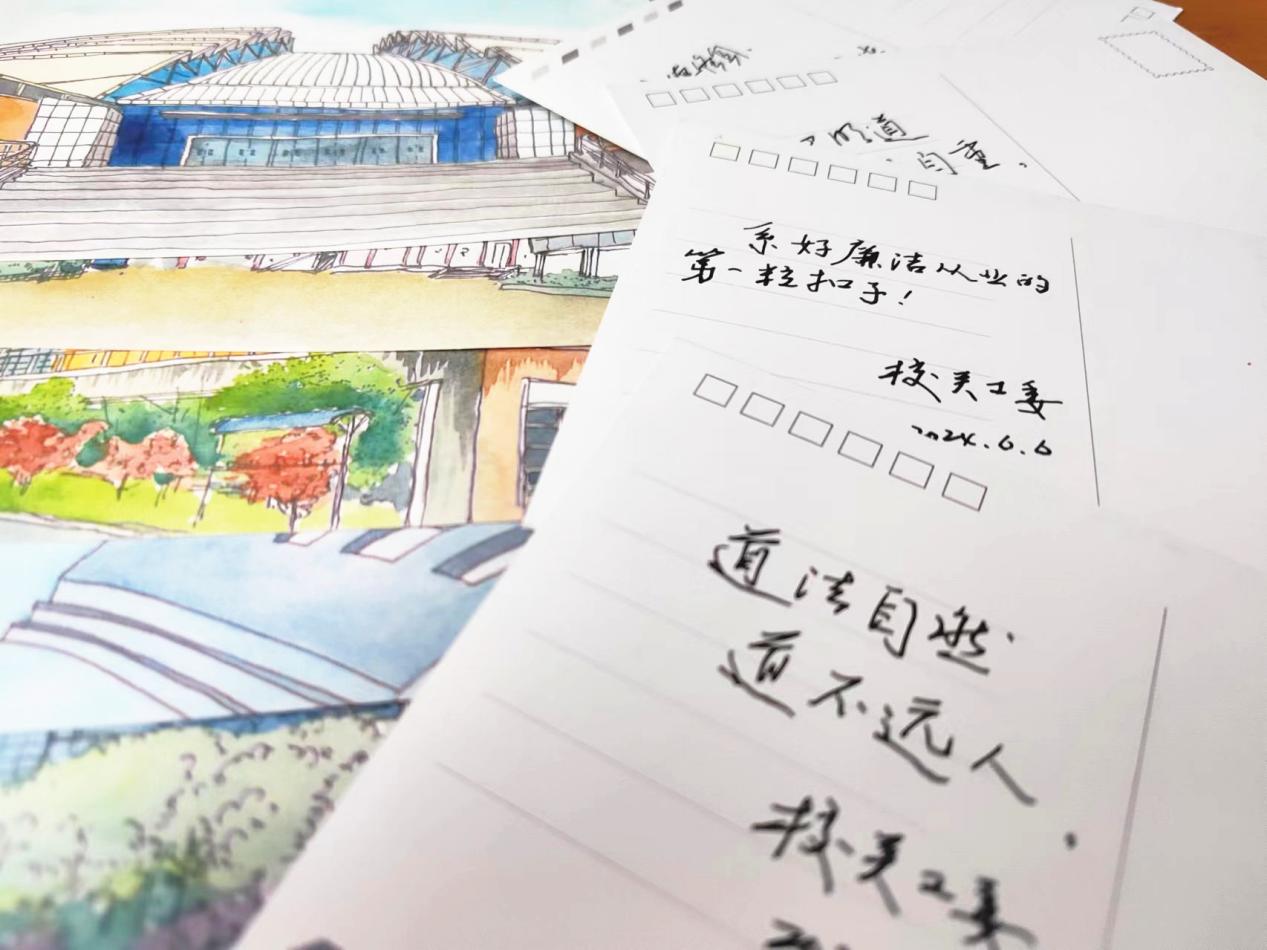 明道
自重。
系好廉洁从业的
第一粒扣子！
校关工委
2024.6.6
道法自然
道不远人
校关工委